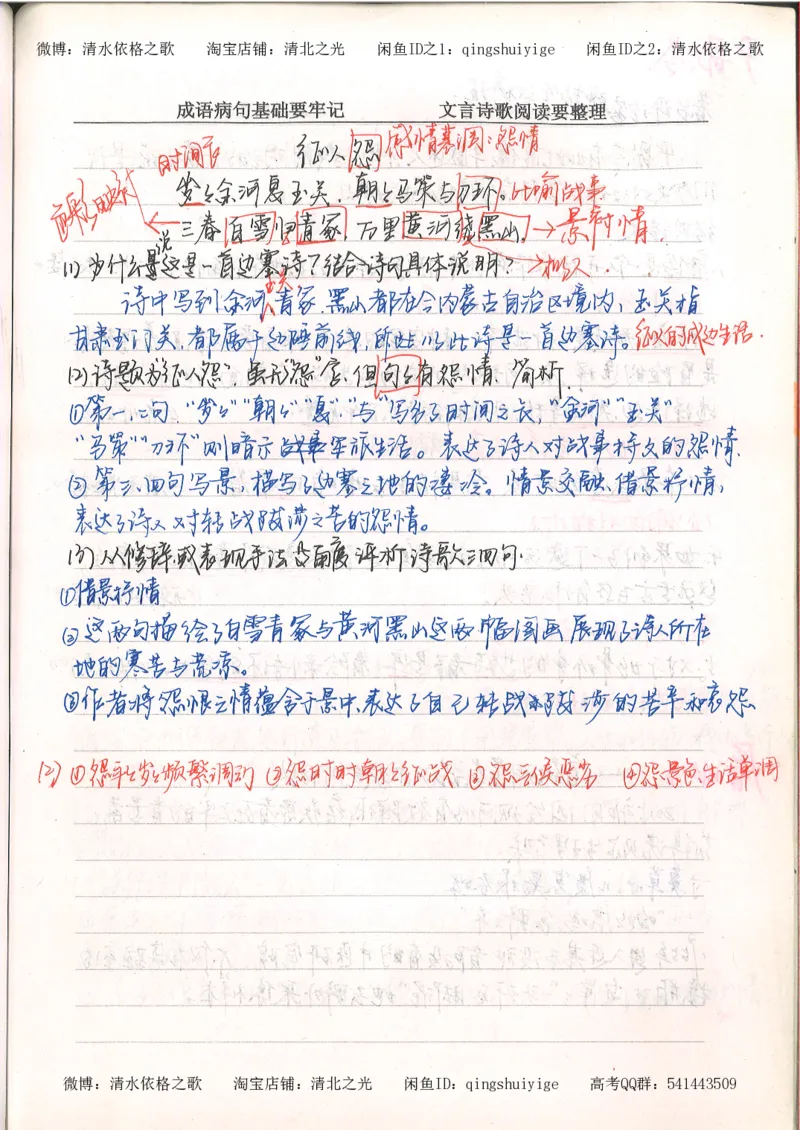 微博：清水依格之歌 淘宝店铺：清北之光 闲鱼ID之1：qingshuiyige 闲鱼ID之2：清水依格之歌
成语病句基础要牢记 文言诗歌阅读要整理
征人怨 感情基调：怨情
时间长
岁岁金河复玉关，朝朝马策与刀环。比喻战事
三春白雪归青冢，万里黄河绕黑山。→景衬情
(1) 为什么说这是一首边塞诗？结合诗句具体说明？→扣人.
玉关
诗中写到金河、青冢、黑山都在今内蒙古自治区境内，玉关指
甘肃玉门关，都属于边陲前线，所以此诗是一首边塞诗。征人的戍边生活.
(2) 诗题为“征人怨”，虽无“怨”字，但句句有怨情，简析.
①第一、二句，“岁岁”“朝朝”“复”“与”写出了时间之长，“金河”“玉关”
“马策”“刀环”则暗示战事军旅生活。表达了诗人对战事持久的怨情.
②第三、四句写景，描写了边塞之地的凄冷。情景交融、借景抒情，
表达了诗人对转战跋涉之苦的怨情。
(3) 从修辞或表现手法角度评析诗歌三四句.
①借景抒情
②这两句描绘了白雪青冢与黄河黑山这两幅图画展现了诗人所在
地的寒苦与荒凉。
③作者将怨恨之情蕴含于景中，表达了自己转战和跋涉的苦辛和哀怨
(2) ①怨年年岁岁频繁调动 ②怨时时朝朝征战 ③怨气候恶劣 ④怨景色、生活单调
微博：清水依格之歌 淘宝店铺：清北之光 闲鱼ID：qingshuiyige 高考QQ群：541443509